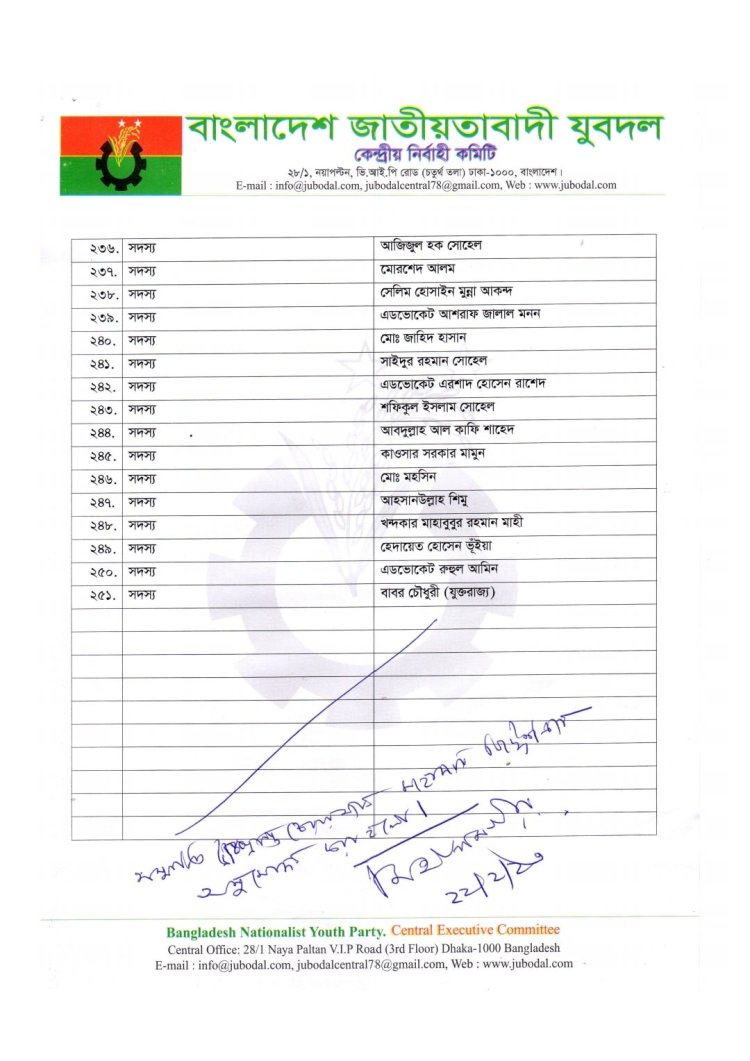 বাংলাদেশ জাতীয়তাবাদী যুবদল
কেন্দ্রীয় নির্বাহী কমিটি
২৮/১, নয়াপল্টন, ভি.আই.পি রোড (চতুর্থ তলা) ঢাকা-১০০০, বাংলাদেশ।
E-mail : info@jubodal.com, jubodalcentral78@gmail.com, Web : www.jubodal.com
২৩৬. সদস্য আজিজুল হক সোহেল
২৩৭. সদস্য মোরশেদ আলম
২৩৮. সদস্য সেলিম হোসাইন মুন্না আকন্দ
২৩৯. সদস্য এডভোকেট আশরাফ জালাল মনন
২৪০. সদস্য মোঃ জাহিদ হাসান
২৪১. সদস্য সাইদুর রহমান সোহেল
২৪২. সদস্য এডভোকেট এরশাদ হোসেন রাশেদ
২৪৩. সদস্য শফিকুল ইসলাম সোহেল
২৪৪. সদস্য আবদুল্লাহ আল কাফি শাহেদ
২৪৫. সদস্য কাওসার সরকার মামুন
২৪৬. সদস্য মোঃ মহসিন
২৪৭. সদস্য আহসানউল্লাহ শিমু
২৪৮. সদস্য খন্দকার মাহাবুবুর রহমান মাহী
২৪৯. সদস্য হেদায়েত হোসেন ভূঁইয়া
২৫০. সদস্য এডভোকেট রুহুল আমিন
২৫১. সদস্য বাবর চৌধুরী (যুক্তরাজ্য)
অনুমোদন করা হলো।
২২/২/২৩
Bangladesh Nationalist Youth Party. Central Executive Committee
Central Office: 28/1 Naya Paltan V.I.P Road (3rd Floor) Dhaka-1000 Bangladesh
E-mail : info@jubodal.com, jubodalcentral78@gmail.com, Web : www.jubodal.com